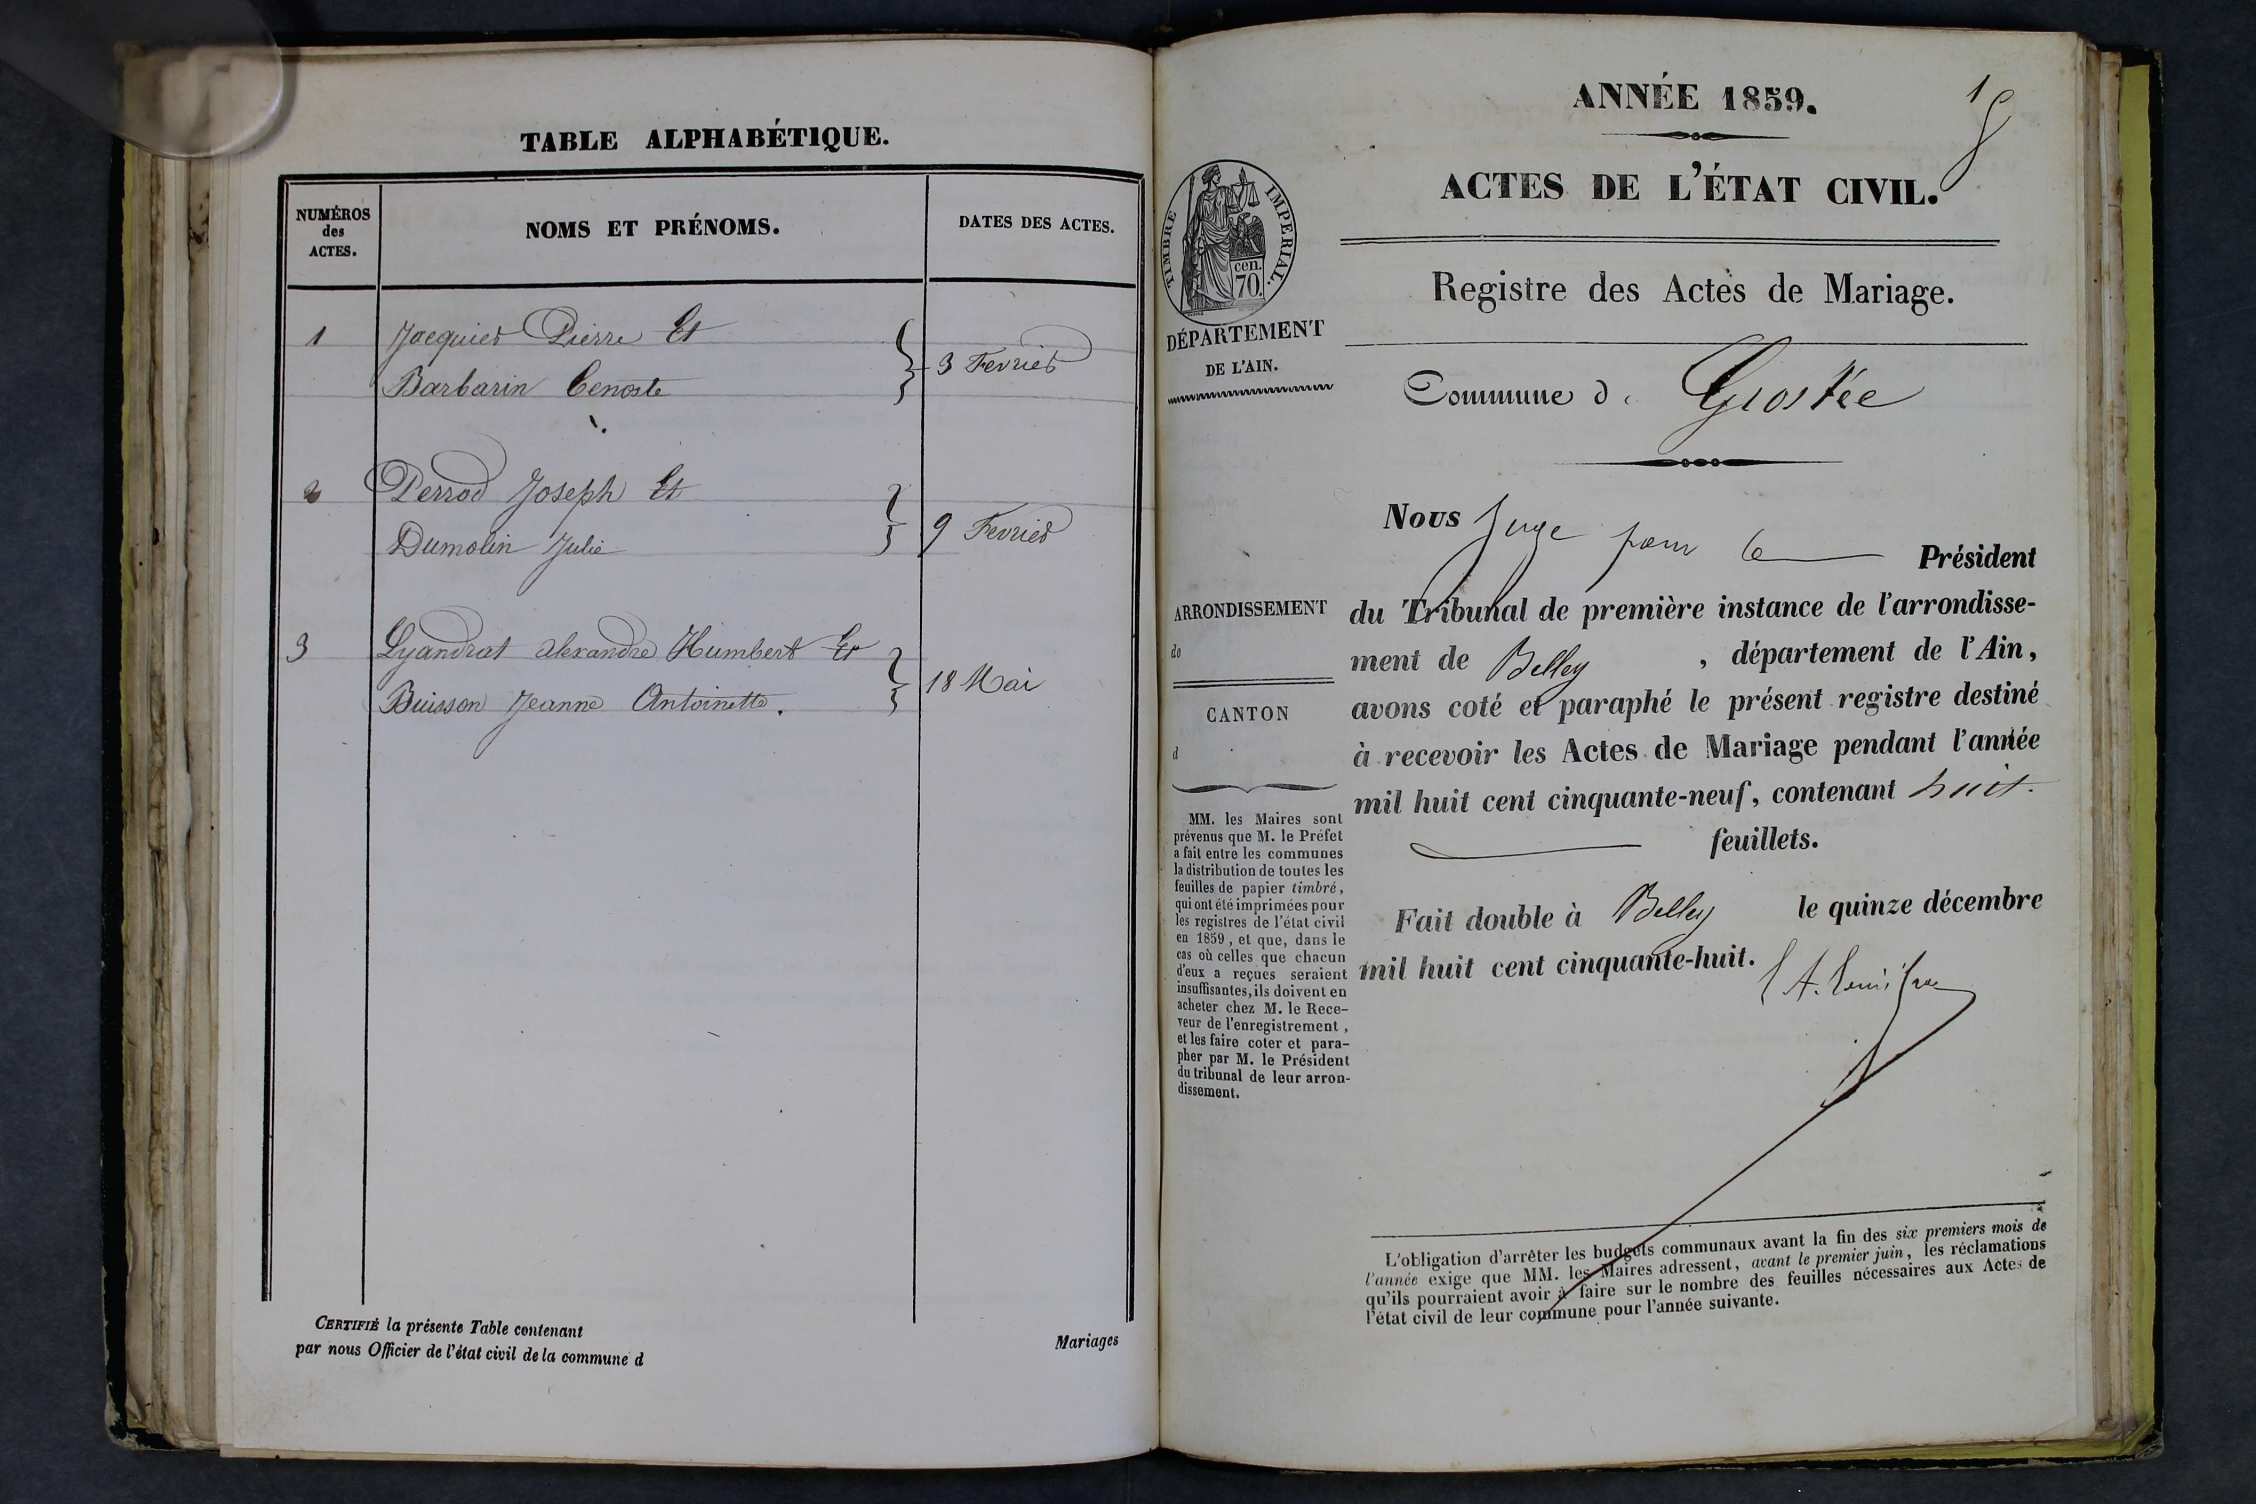 TABLE ALPHABÉTIQUE.
NUMÉROS
des
ACTES.
NOMS ET PRÉNOMS.
DATES DES ACTES.
1
Jacquier Pierre Et
Barbarin Cenoste
3 Fevrier
2
Perrod Joseph Et
Dumolin Julie
9 Fevrier
3
Lyandrat alexandre Humbert Et
Buisson Jeanne Antoinette.
18 Mai
CERTIFIÉ la présente Table contenant
Mariages
par nous Officier de l'état civil de la commune d
ANNÉE 1859.
1
ACTES DE L'ÉTAT CIVIL.
TIMBRE IMPERIAL.
cen.
70.
Registre des Actes de Mariage.
DÉPARTEMENT
DE L'AIN.
Commune d Grostée
Nous Juge pour le Président
du Tribunal de première instance de l'arrondisse-
ment de Belley, département de l'Ain,
avons coté et paraphé le présent registre destiné
à recevoir les Actes de Mariage pendant l'année
mil huit cent cinquante-neuf, contenant huit.
feuillets.
Fait double à Belley le quinze décembre
mil huit cent cinquante-huit.
ARRONDISSEMENT
de
CANTON
d
MM. les Maires sont
prévenus que M. le Préfet
a fait entre les communes
la distribution de toutes les
feuilles de papier timbré,
qui ont été imprimées pour
les registres de l'état civil
en 1859, et que, dans le
cas où celles que chacun
d'eux a reçues seraient
insuffisantes, ils doivent en
acheter chez M. le Rece-
veur de l'enregistrement,
et les faire coter et para-
pher par M. le Président
du tribunal de leur arron-
dissement.
L'obligation d'arrêter les budgets communaux avant la fin des six premiers mois de
l'année exige que MM. les Maires adressent, avant le premier juin, les réclamations
qu'ils pourraient avoir à faire sur le nombre des feuilles nécessaires aux Actes de
l'état civil de leur commune pour l'année suivante.